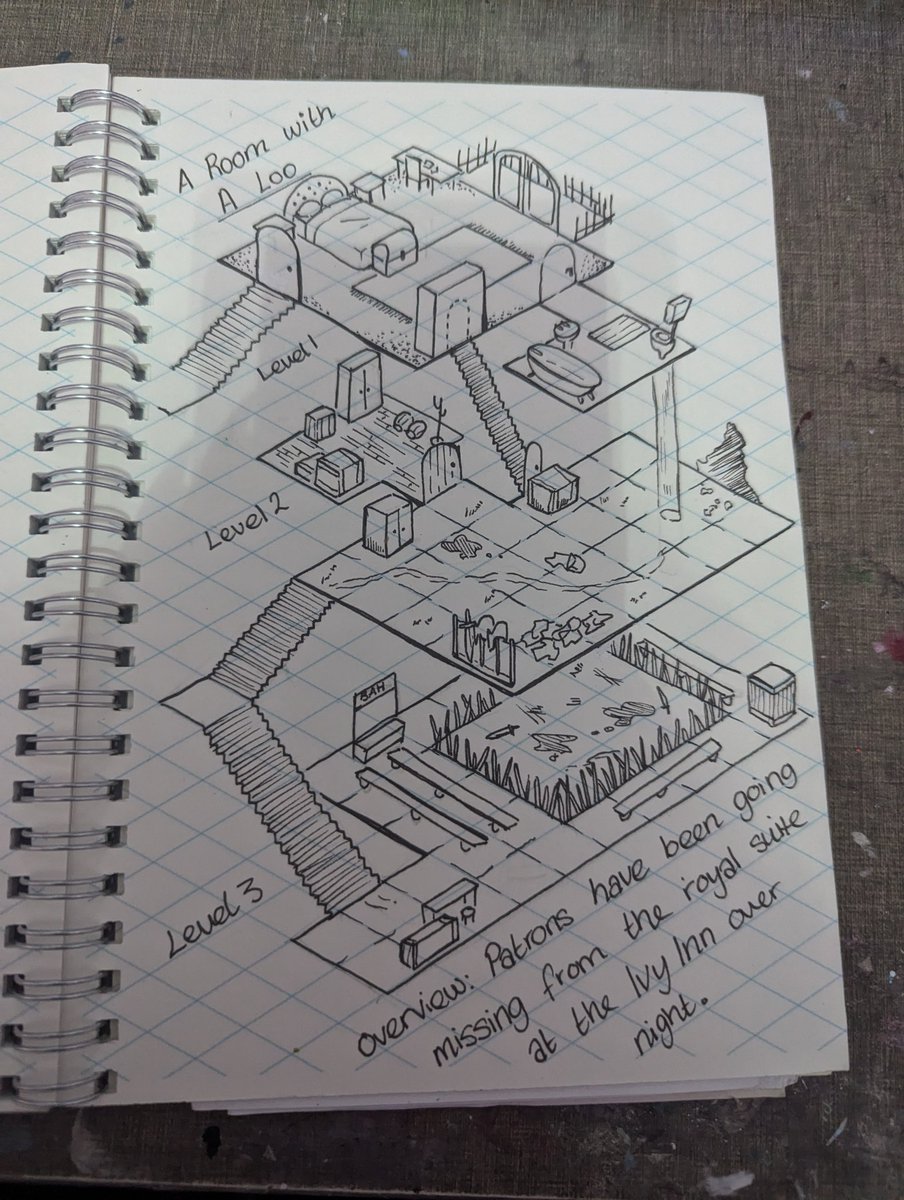 A Room with
A Loo
Level 1
Level 2
BAH
Level 3
overview: Patrons have been going
missing from the royal suite
at the Ivy Inn over
night.